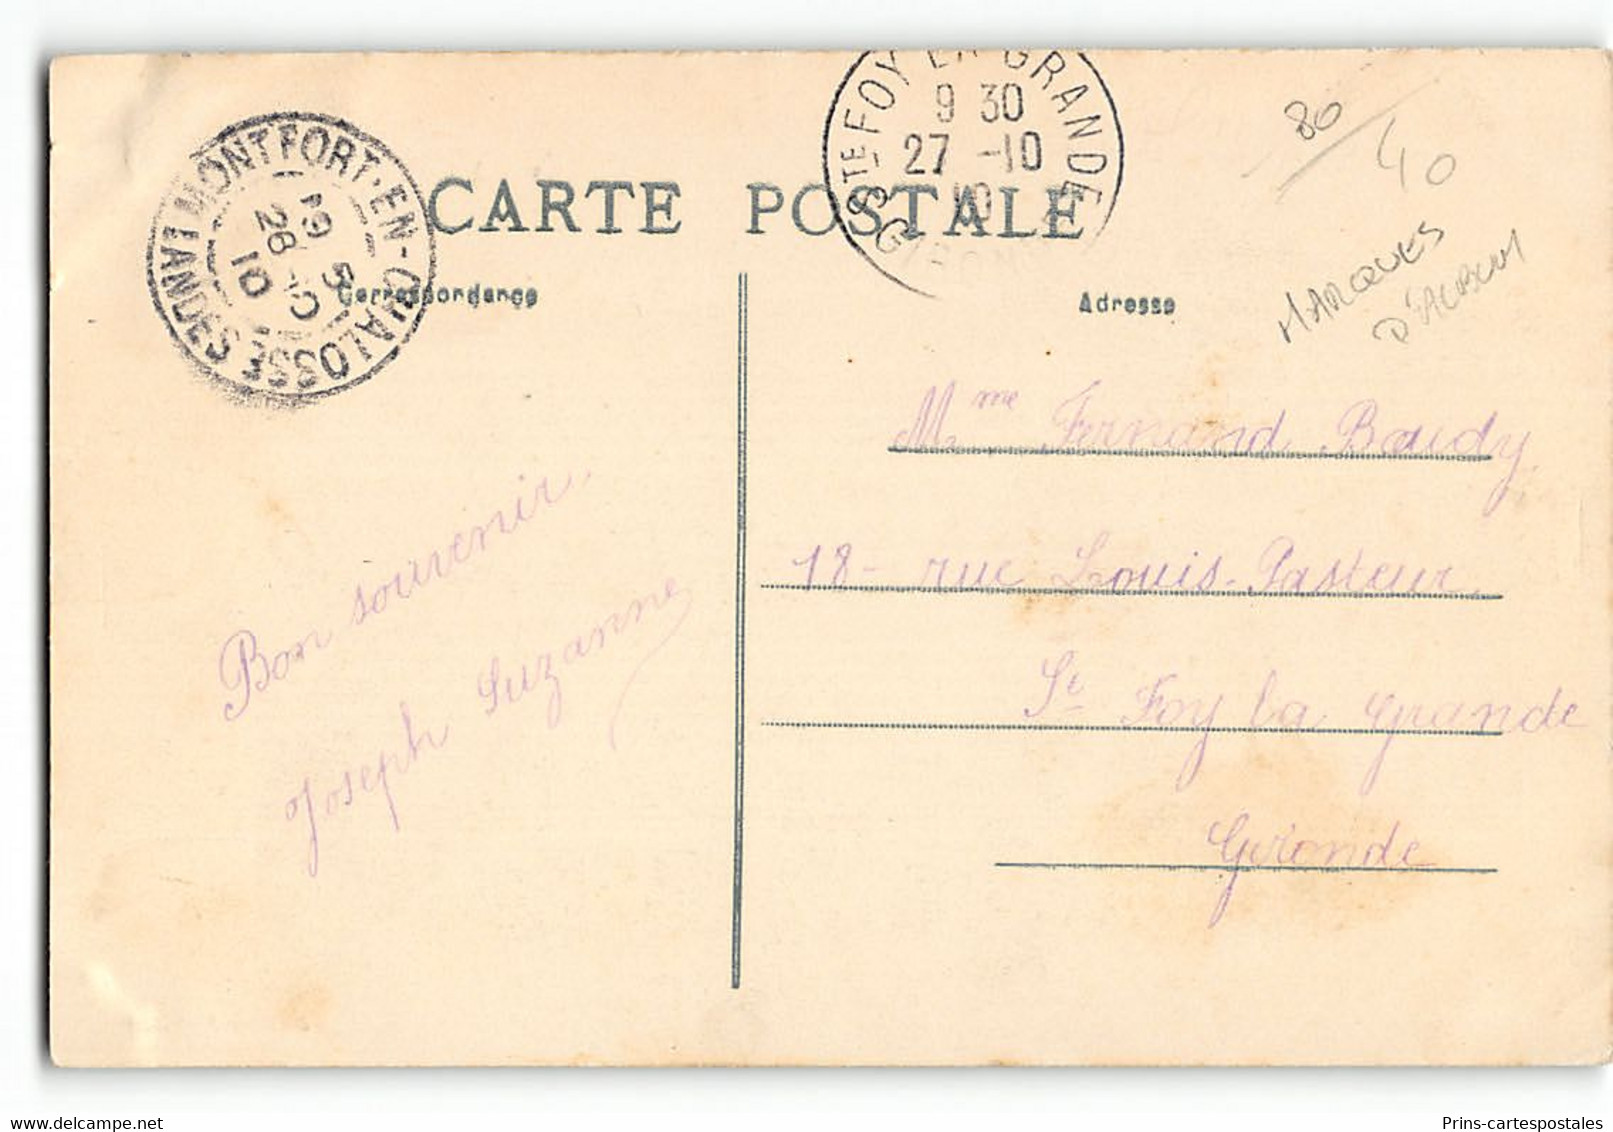 MONTFORT-EN-CHALOSSE
LANDES
19 5
10
STE FOY LA GRANDE
9 30
27 -10
10
80
40
CARTE POSTALE
Correspondance
Adresse
MARQUES
D'ALBUM
Mme Fernand Boudy
18- rue Louis-Pasteur
St Foy la Grande
Gironde
Bon souvenir,
Joseph Suzanne
Prins-cartespostales